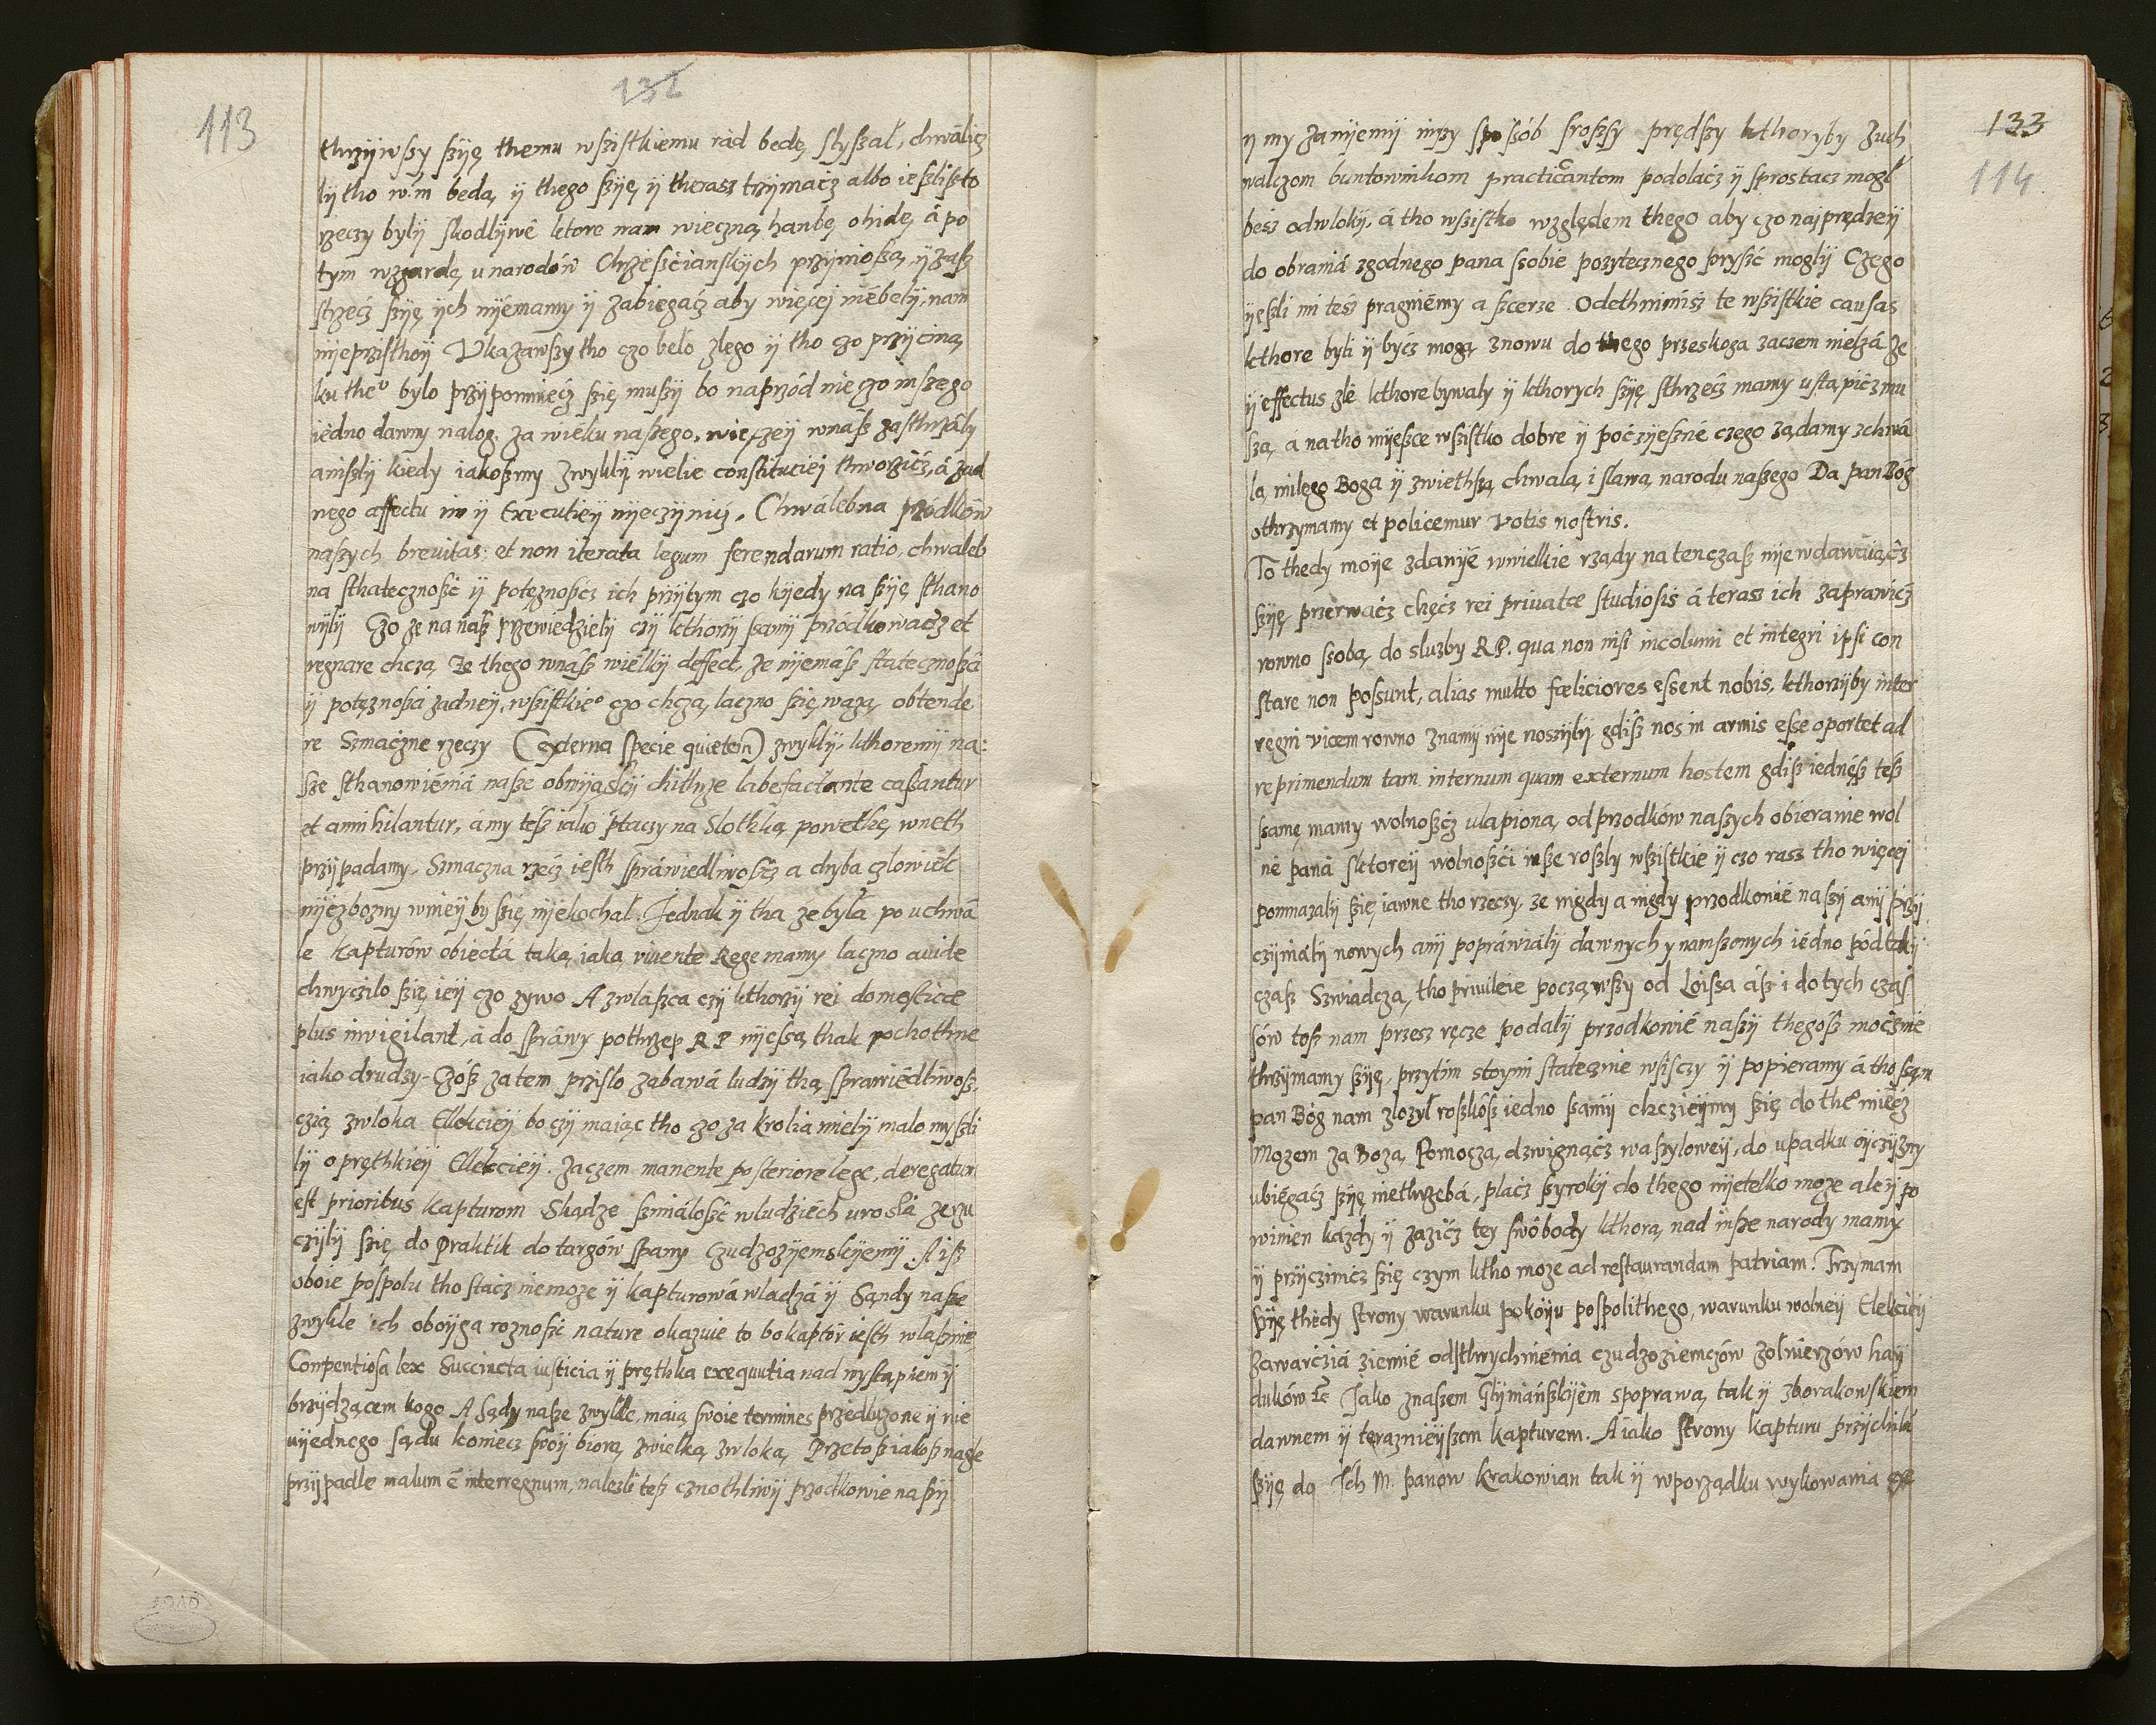 132
113
thrzÿwszy szÿę themu wszistkiemu rad bedę slyszał, chwalicz
lÿ tho w.m beda, ÿ thego szÿę ÿ therasz trzÿmacz albo ieszliszto
rzeczy bylÿ skodlÿwé ktore nam wieczną hanbę ohidę, á po
tym wzgardę u narodów Chrzesscianskÿch przÿniosą, ÿ zasz
strzécz szÿę ÿch mÿémamy ÿ zabiegácz aby więcej niébelÿ, nam
nÿeprzisthoÿ Vkazawszy tho czo beło zlego ÿ tho czo przÿciną
ku theº bylo przÿpomniecz się muszÿ bo naprzód nie czo inszego
iédno dawny nalog. za wiéku naszego, więczeÿ wnász zasthrzály
aniszlÿ kiedy iakoszmy zwyklÿ wielie constituciej thworzicz, á zad
nego affectu im ÿ Executieÿ nÿeczÿnić. Chwálebna przódków
naszych breuitas: et non iterata legum ferendarum ratio, chwaleb
na sthatecznośc ÿ potęznoscz ich przÿtym czo kÿedy na szÿę sthano
wÿlÿ Czo ze na nasz przewiedzielÿ czÿ kthorzÿ samÿ przódkowacz et
regnare chcza, Ze thego wnász wiélkÿ deffect, ze nÿemász statecznosci
ÿ potęznosci zadneÿ, wszistkieº czo chcza, laczno się waza, obtende
re Szmaczne rzeczy (externa specie quietem) zwyklÿ, kthoremÿ na:
sze sthanowiéniá nasze obwÿaskÿ chithrze labefactante cassantur
et annihilantur, á my tész iako ptaczy na Slothką powetkę wneth
przÿpadamy. Szmaczna rzécz iesth spráwiedliwoścz a chyba czlowiék
nÿezbozny wnieÿ by się nÿekochał. Jednak ÿ tha ze była po uchwa
le Kapturów obiectá taka, iaka, viuente Rege mamy laczno auide
chwyczilo się ieÿ czo zywo A zwlaszca czÿ kthorzÿ rei domesticæ
plus inuigilant, á do spráwy pothrzep R P nÿesą thak pochothne
iako drudzy. Czósz zatem przislo zabawá ludzÿ tha sprawiédliwosz
czią zwloka Ellekcieÿ bo czÿ maiąc tho czo za krolia mielÿ malo myszli
lÿ o pręthkieÿ Ellekcieÿ. Zaczem manente posteriore lege, deregatum
est prioribus kapturom Skądze szmiáloszc wludziéch urosla ze rzu
czÿlÿ się do Praktik do targów spany Czudzozÿemskÿemÿ. A isz
oboie pospolu tho stacz niemoze ÿ kapturowá wladzá ÿ Sandy nasze
zwykle ich oboÿga roznoszc nature okazuie to bo kaptór iesth wlasznie
Compentiosa lex Succincta iusticia ÿ pręthka exequutia nad wystąpiem ÿ
brzÿdzącem kogo A Sądy nasze zwykle, maią swoie termines przedluzone ÿ nie
uÿednego sądu koniecz swoÿ biorą, zwielką zwloką, Przeto sz iakosz nagle
przÿpadle malum é interregnum, nalezli tesz cznothliwÿ przodkowie naszÿ
133
114
n my zanÿemÿ inzy sposób srosszy prędszy kthoryby zuch
walczom buntownikom practicantom podolácz ÿ sprostacz mogl
bész odwlokÿ, á tho wszistko względem thego aby czo najprędzeÿ
do obraniá zgodnego pana ssobie pozytecznego pryszć moglÿ Czego
ÿeszli mi tész pragniémy a szcerze Odethnimisz te wszistkie causas
kthore byli ÿ bycz mogą znowu do thego przeskoga zaczem nielzá ze
ÿ effectus zlé kthore bywaly ÿ kthorych szÿę sthrzécz mamy ustąpicz mu
szą, á na tho mÿesce wszistko dobre ÿ poczÿesne czego ządamy zchwa
lą milego Boga ÿ zwiethszą chwalą, i slawą narodu naszego Da pan Bóg
othrzymamy et policemur votis nostris.
To thedy moÿe zdanÿé wwielkie rządy na tenczasz nÿewdawáiącz
szÿę, przerwácz chęcz rei priuatæ studiosis á terasz ich zaprawicz
rowno szobą, do sluzby R.P. qua non nisi incolumi et integri ipsi con
stare non possunt, alias multo fæliciores essent nobis, kthorzÿby inter
regni vicem rowno znamÿ nÿe noszÿlÿ gdisz nos in armis esse oportet ad
reprimendum tam internum quam externum hostem gdisz iednész tész
samę mamy wolnoszcz ulapiona, od przodków naszych obieranie wol
né paná sktoreÿ wolnoszći insze roszly wszistkie ÿ czo rasz tho więcej
pomnazalÿ się iawne tho rzeczy, ze nigdy a nigdy przodkowié naszÿ anÿ przÿ
czÿniálÿ nowych anÿ popráwialÿ dawnych ynamszonych iédno pódlzikÿ
czasz Szwiadcza, tho priuileie począwszy od Loissa ász i do tych czas
sów tosz nam przesz ręcze podalÿ przodkowié naszÿ thegósz moćznie
thrzÿmamy szÿę, przytim stoymi statecznie wsisczy ÿ popieramy á tho sąm
pan Bóg nam zlozył roszkósz iedno samÿ chczieÿmy się do theº miecz
Mozem za Bozą, Pomoczą, dzwignącz waszyloweÿ, do upadku oÿczÿzny
ubiégácz szÿę niethrzebá, plácz szyrokÿ do thego nÿetelko moze aleÿ po
winien kazdy ÿ zazicz tey swóbody kthorą, nad insze narody mamy
ÿ przÿczinicz się czym ktho moze ad restaurandam patriam. Trzymam
szÿę thedy strony warunku pokóÿu pospolithego, warunku wolneÿ Elekcieÿ
Zawarcziá ziemié odsthrychniénia czudzoziemczów zolnierzów haÿ
duków &c Jako znaszem Glÿniánszkÿém spoprawą, tak ÿ zborakowskiem
dawnem ÿ teraznieÿszem kapturem. A iako strony kapturu przÿchile
szÿę do Ich M. panow Krakowian tak ÿ wporządku wykowania ge